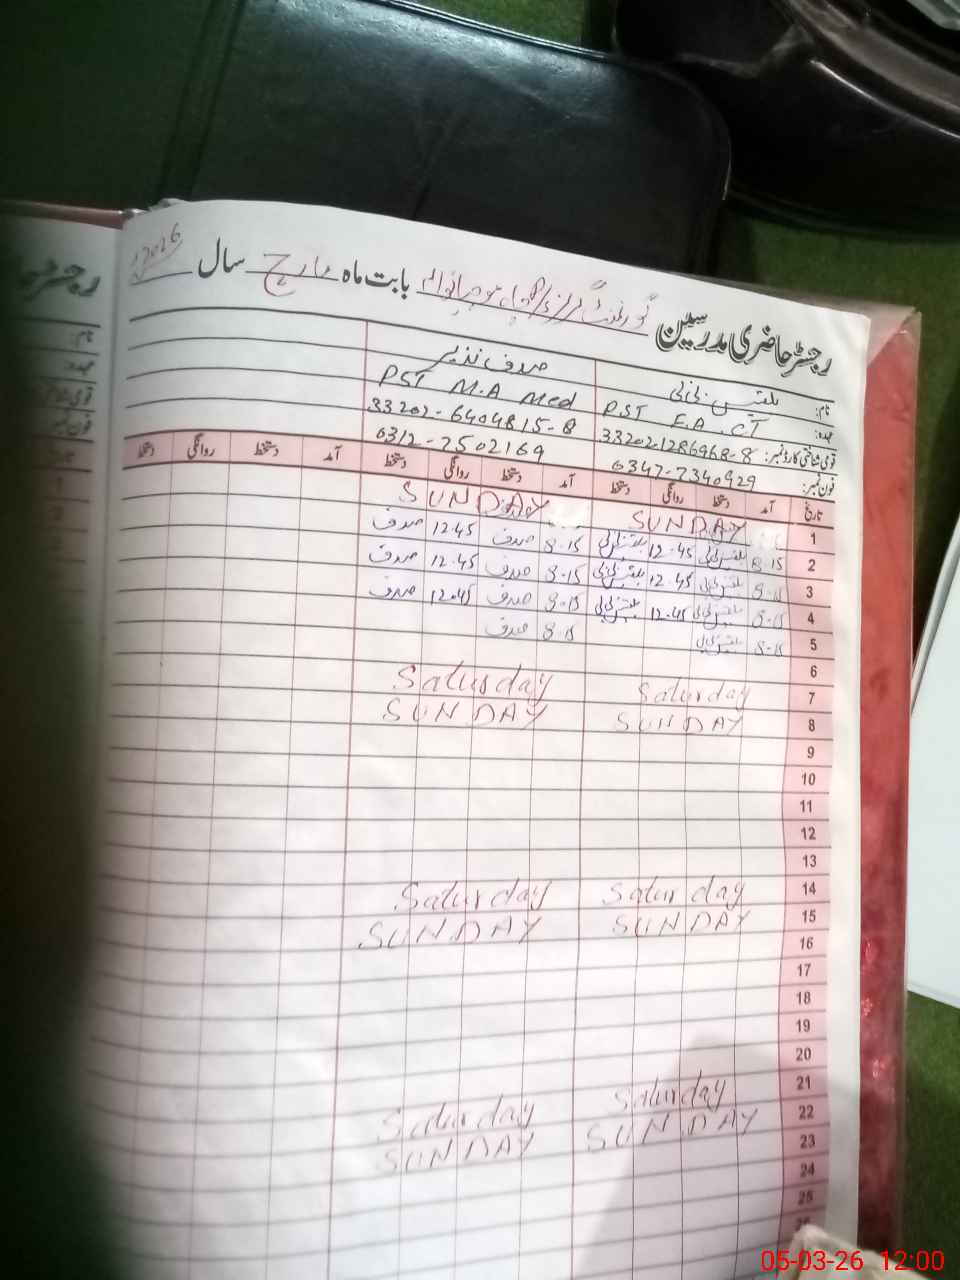 رجسٹر حاضری مدرسین گورنمنٹ گرلز بابت ماہ مارچ سال 2026
نام: بلقیس بی بی صدف نذیر
عہدہ: PST F.A. CT PST M.A Med
قومی شناختی کارڈ نمبر: 33202-1286968-8 33202-6404815-8
فون نمبر: 0347-7340929 0312-7502169
تاریخ آمد دستخط روانگی دستخط آمد دستخط روانگی دستخط آمد دستخط روانگی دستخط
1 SUNDAY SUNDAY
2 8-15 بلقیس بی بی 12-45 بلقیس بی بی 8-15 صدف 12.45 صدف
3 8-15 بلقیس بی بی 12.45 بلقیس بی بی 8-15 صدف 12.45 صدف
4 8-15 بلقیس بی بی 12.45 بلقیس بی بی 8-15 صدف 12.45 صدف
5 8-15 بلقیس بی بی 8-15 صدف
6
7 Saturday Saturday
8 SUNDAY SUNDAY
9
10
11
12
13
14 Saturday Saturday
15 SUNDAY SUNDAY
16
17
18
19
20
21 Saturday Saturday
22 SUNDAY SUNDAY
23
24
25
05-03-26 12:00